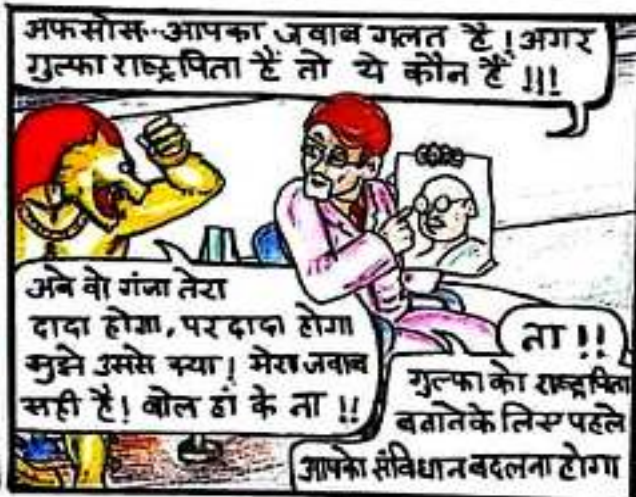 अफसोस..आपका जवाब गलत है!अगर
गुल्फा राष्ट्रपिता हैं तो ये कौन हैं !!!
अबे वो गंजा तेरा
दादा होगा, परदादा होगा
मुझे उससे क्या! मेरा जवाब
सही है! बोल हाँ के ना !!
ना!!
गुल्फा को राष्ट्रपिता
बनाने के लिए पहले
आपको संविधान बदलना होगा